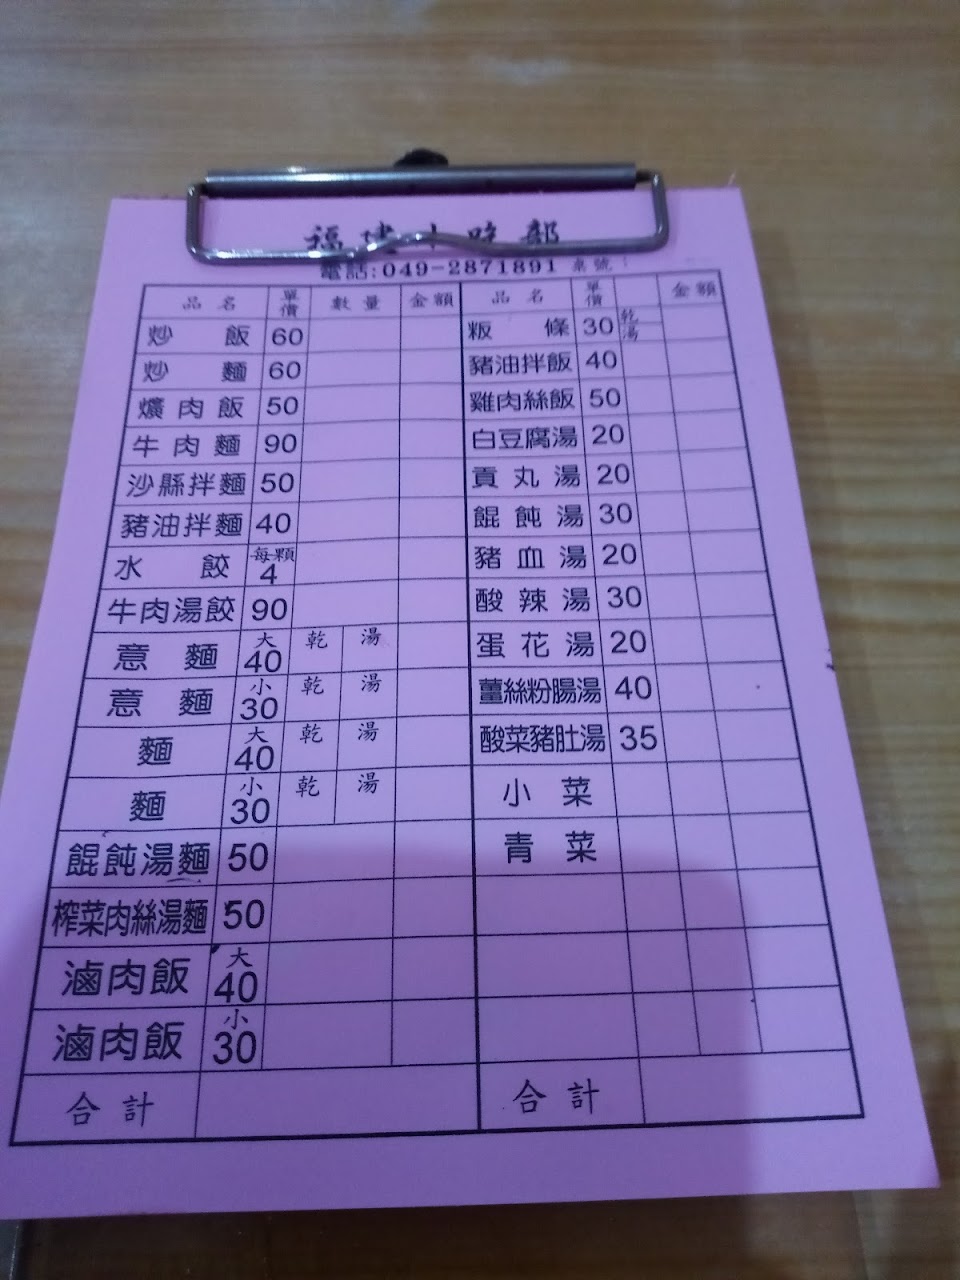 福建小吃部
電話:049-2871891 桌號:
品名 單價 數量 金額
炒飯 60
炒麵 60
爌肉飯 50
牛肉麵 90
沙縣拌麵 50
豬油拌麵 40
水餃 每顆4
牛肉湯餃 90
意麵 大40 乾 湯
意麵 小30 乾 湯
麵 大40 乾 湯
麵 小30 乾 湯
餛飩湯麵 50
榨菜肉絲湯麵 50
滷肉飯 大40
滷肉飯 小30
合計
品名 單價 金額
粄條 30 乾 湯
豬油拌飯 40
雞肉絲飯 50
白豆腐湯 20
貢丸湯 20
餛飩湯 30
豬血湯 20
酸辣湯 30
蛋花湯 20
薑絲粉腸湯 40
酸菜豬肚湯 35
小菜
青菜
合計